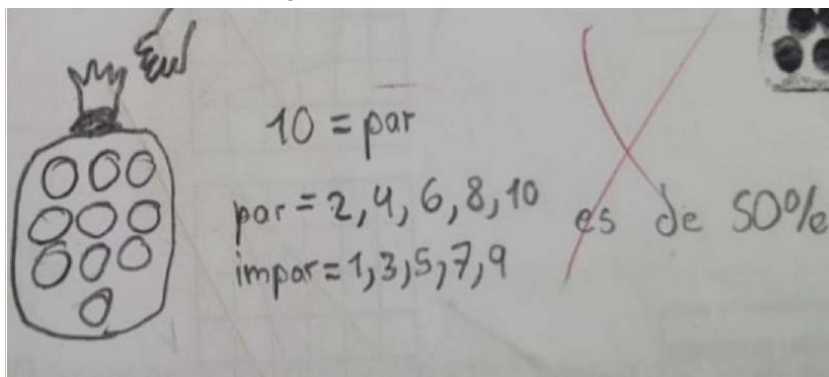 10 = par
par = 2, 4, 6, 8, 10
impar = 1, 3, 5, 7, 9
es de 50%